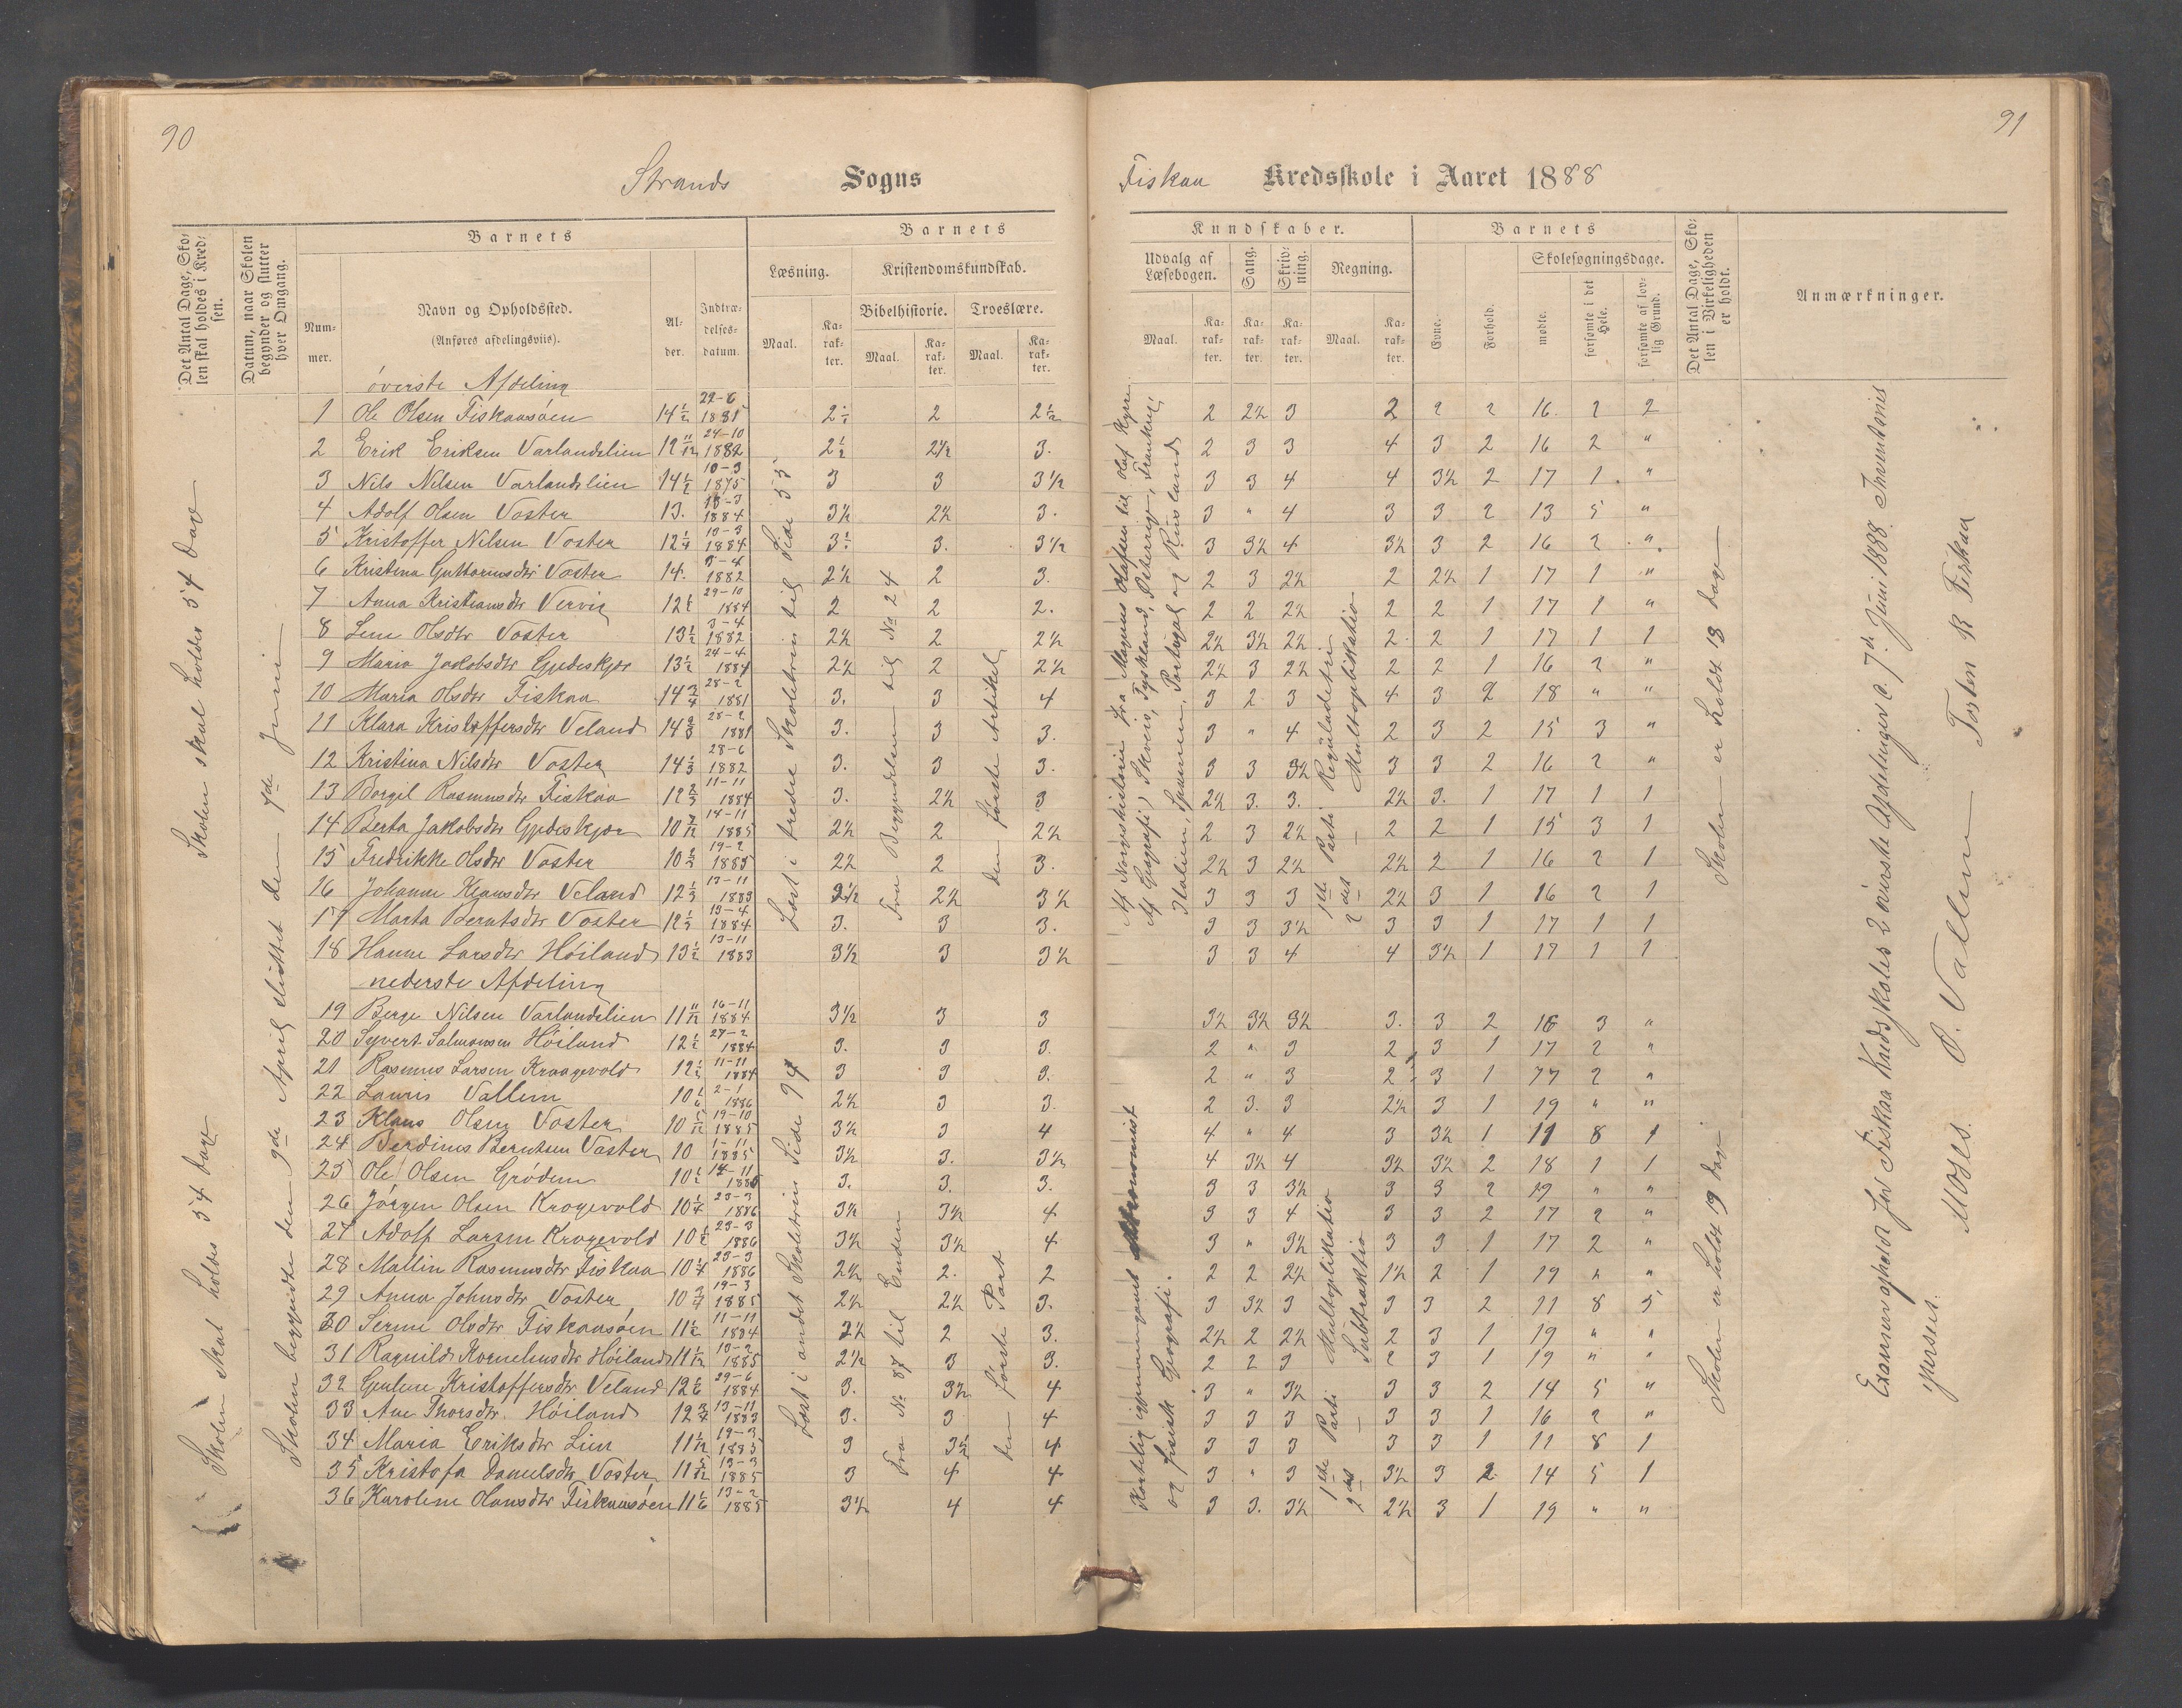 90
91
Strands Sogns
Fiskaa Kredsskole i Aaret 1888
Det Antal Dage, Skolen skal holdes i Kredsen.
Datum, naar Skolen begynder og slutter hver Omgang.
Barnets
Nummer.
Navn og Opholdssted.
(Anføres afdelingsviis).
Alder.
Indtrædelsesdatum.
Barnets
Læsning.
Kristendomskundskab.
Bibelhistorie.
Troeslære.
Maal.
Karakter.
Maal.
Karakter.
Maal.
Karakter.
Kundskaber.
Udvalg af Læsebogen.
Sang.
Skrivning.
Regning.
Maal.
Karakter.
Karakter.
Karakter.
Maal.
Karakter.
Barnets
Evne.
Forhold.
Skolesøgningsdage.
mødte.
forsømte i det Hele.
forsømte af lovlig Grund.
Det Antal Dage, Skolen i Virkeligheden er holdt.
Anmærkninger.
Skolen skal holdes 54 Dage
Skolen skal holdes 54 Dage
Skolen begyndte den 9de April sluttet den 7de Juni
Læst i tredie Skoletrin til Side 55
Fra Begyndelsen til No 24
den første Artikel
Af Norgeshistorie fra Magnus Olafsen til Olaf Kyrre.
1ste Parti. Reguladetri
2det — Multoplikation
Skolen er holdt 18 Dage
øverste Afdeling
1 Ole Olsen Fiskaasøen 14½ 22-6 1881 2½ 2 2½ 2 2½ 3 2 2 2 16 2 2
2 Erik Eriksen Varlandslien 12 11/12 24-10 1882 2½ 2½ 3. 2 3 3 4 3 2 16 2 "
3 Nils Nilsen Varlandslien 14½ 10-3 1875 3 3 3½ 3 3 4 4 3½ 2 17 1 "
4 Adolf Olsen Voster 13. 13-3 1884 3½ 2½ 3. 3 " 4 3 3 2 13 5 "
5 Kristoffer Nilsen Voster 12¼ 10-3 1884 3½ 3. 3½ 3 3½ 4 3½ 3 2 16 2 "
6 Kristina Guttormsdtr Voster 14. 5-4 1882 2½ 2 3. 2 3 2½ 2 2½ 1 17 1 "
7 Anna Kristiansdtr Vervig 12½ 29-10 1884 2 2 2. 2 2 2½ 2 2 1 17 1 "
8 Lene Olsdtr Voster 13½ 3-4 1882 2½ 2 2½ 2½ 3½ 2½ 2 2 1 17 1 1
9 Maria Jacobsdtr Gjedeskjær 13½ 24-4 1884 2½ 2 2½ 2½ 3 2½ 2 2 1 16 2 "
10 Maria Olsdtr Fiskaa 14¾ 28-2 1881 3. 3 4 3 2 3 4 3 2 18 " "
11 Klara Kristoffersdtr Veland 14⅔ 28-2 1881 3. 3 3. 3 " 4 2 3 2 15 3 "
12 Kristina Nilsdtr Voster 14⅓ 28-6 1882 3. 3 3. 3 3 3½ 3 3 2 16 2 "
13 Borgil Rasmusdtr Fiskaa 12⅔ 11-11 1884 3. 2½ 3 2½ 3. 3. 2½ 3. 1 17 1 1
14 Berta Jakobsdtr Gjedeskjær 10 7/12 14-11 1885 2½ 2 2½ 2 3 2½ 2 2 1 15 3 1
15 Fredrikke Olsdtr Voster 10⅔ 19-2 1885 2½ 2 3. 2½ 3 2½ 2½ 2 1 16 2 1
16 Johanne Klausdtr Veland 12⅓ 13-11 1883 2½ 2½ 3½ 3 3 3 2½ 3 1 16 2 1
17 Marta Berntsdtr Voster 12⅓ 13-4 1884 3. 3 3. 3 3 3½ 3 3 1 17 1 1
18 Hanne Larsdtr Høiland 13½ 13-11 1883 3½ 3 3½ 3 3 4 4 3½ 1 17 1 1
nederste Afdeling
19 Berge Nilsen Varlandslien 11 11/12 16-11 1884 3½ 3 3 3½ 3½ 3½ 3. 3 2 16 3 "
20 Syvert Salmonsen Høiland 12½ 27-2 1884 3. 3 3. 2 " 3 2 3 1 17 2 "
21 Rasmus Larsen Kraagevold 12½ 11-11 1884 3 3 3. 2 " 3 2 3 1 17 2 "
22 Lauris Vallem 10⅙ 2-1 1886 2½ 3 3. 2 3. 3 2½ 3 1 19 " "
23 Klaus Olsen Voster 10 5/12 19-10 1885 3½ 3 4 4 " 4 3 3½ 1 11 8 1
24 Berdines Berntsen Voster 10 1-11 1885 3½ 3. 3½ 4 3½ 4 3½ 3½ 2 18 1 1
25 Ole Olsen Grødem 10½ 14-11 1886 3. 3. 3. 3 3 3½ 3 3 2 19 " "
26 Jørgen Olsen Krogevold 10¼ 23-3 1886 3½ 3½ 4 3 3 4 3 3 2 17 2 "
27 Adolf Larsen Krogevold 10½ 23-3 1886 3½ 3½ 4 3 " 3½ 3 3 1 17 2 "
28 Mallin Rasmusdtr Fiskaa 10¼ 23-3 1886 2½ 2. 2 2 2 2½ 1½ 2 1 19 " "
29 Anna Johnsdtr Voster 10¾ 19-3 1885 2½ 2½ 3. 3 3½ 3 3 3 2 11 8 5
30 Serine Olsdtr Fiskaasøen 11½ 11-11 1884 2½ 2 3. 2½ 2 2½ 2 3 1 19 " "
31 Ragnild Korneliusdtr Høiland 11 1/12 13-2 1885 2½ 3 3. 2 2 3 2 3 1 19 " "
32 Gunlene Kristoffersdtr Veland 12⅙ 29-6 1884 3. 3½ 4 3 " 3½ 3 3 2 14 5 "
33 Ane Thorsdtr. Høiland 12¾ 13-11 1883 3. 3 4 3 3 3 3 3 1 16 2 "
34 Maria Eriksdtr Lien 11½ 19-3 1885 3 3½ 4 3 3 3 3 3 1 11 8 1
35 Kristofa Danielsdtr Voster 11 5/12 13-3 1885 3 4 4 3 " 3 3½ 3 2 14 5 1
36 Karoline Hansdtr Fiskaasøen 11⅙ 13-2 1885 3½ 4 4 3 3. 3½ 2½ 3 1 19 " "
Læst i andet Skoletrin Side 94
Fra No 87 til Enden
den første Part
og fysisk Geografi.
1ste Parti Multoplikation
2det — Subtraktion
Skolen er holdt 19 Dage
Examen afholdt for Fiskaa Kredsskoles 2 øverste Afdelinger d. 7de Juni 1888.
O. Vallem
Torsten R Fiskaa